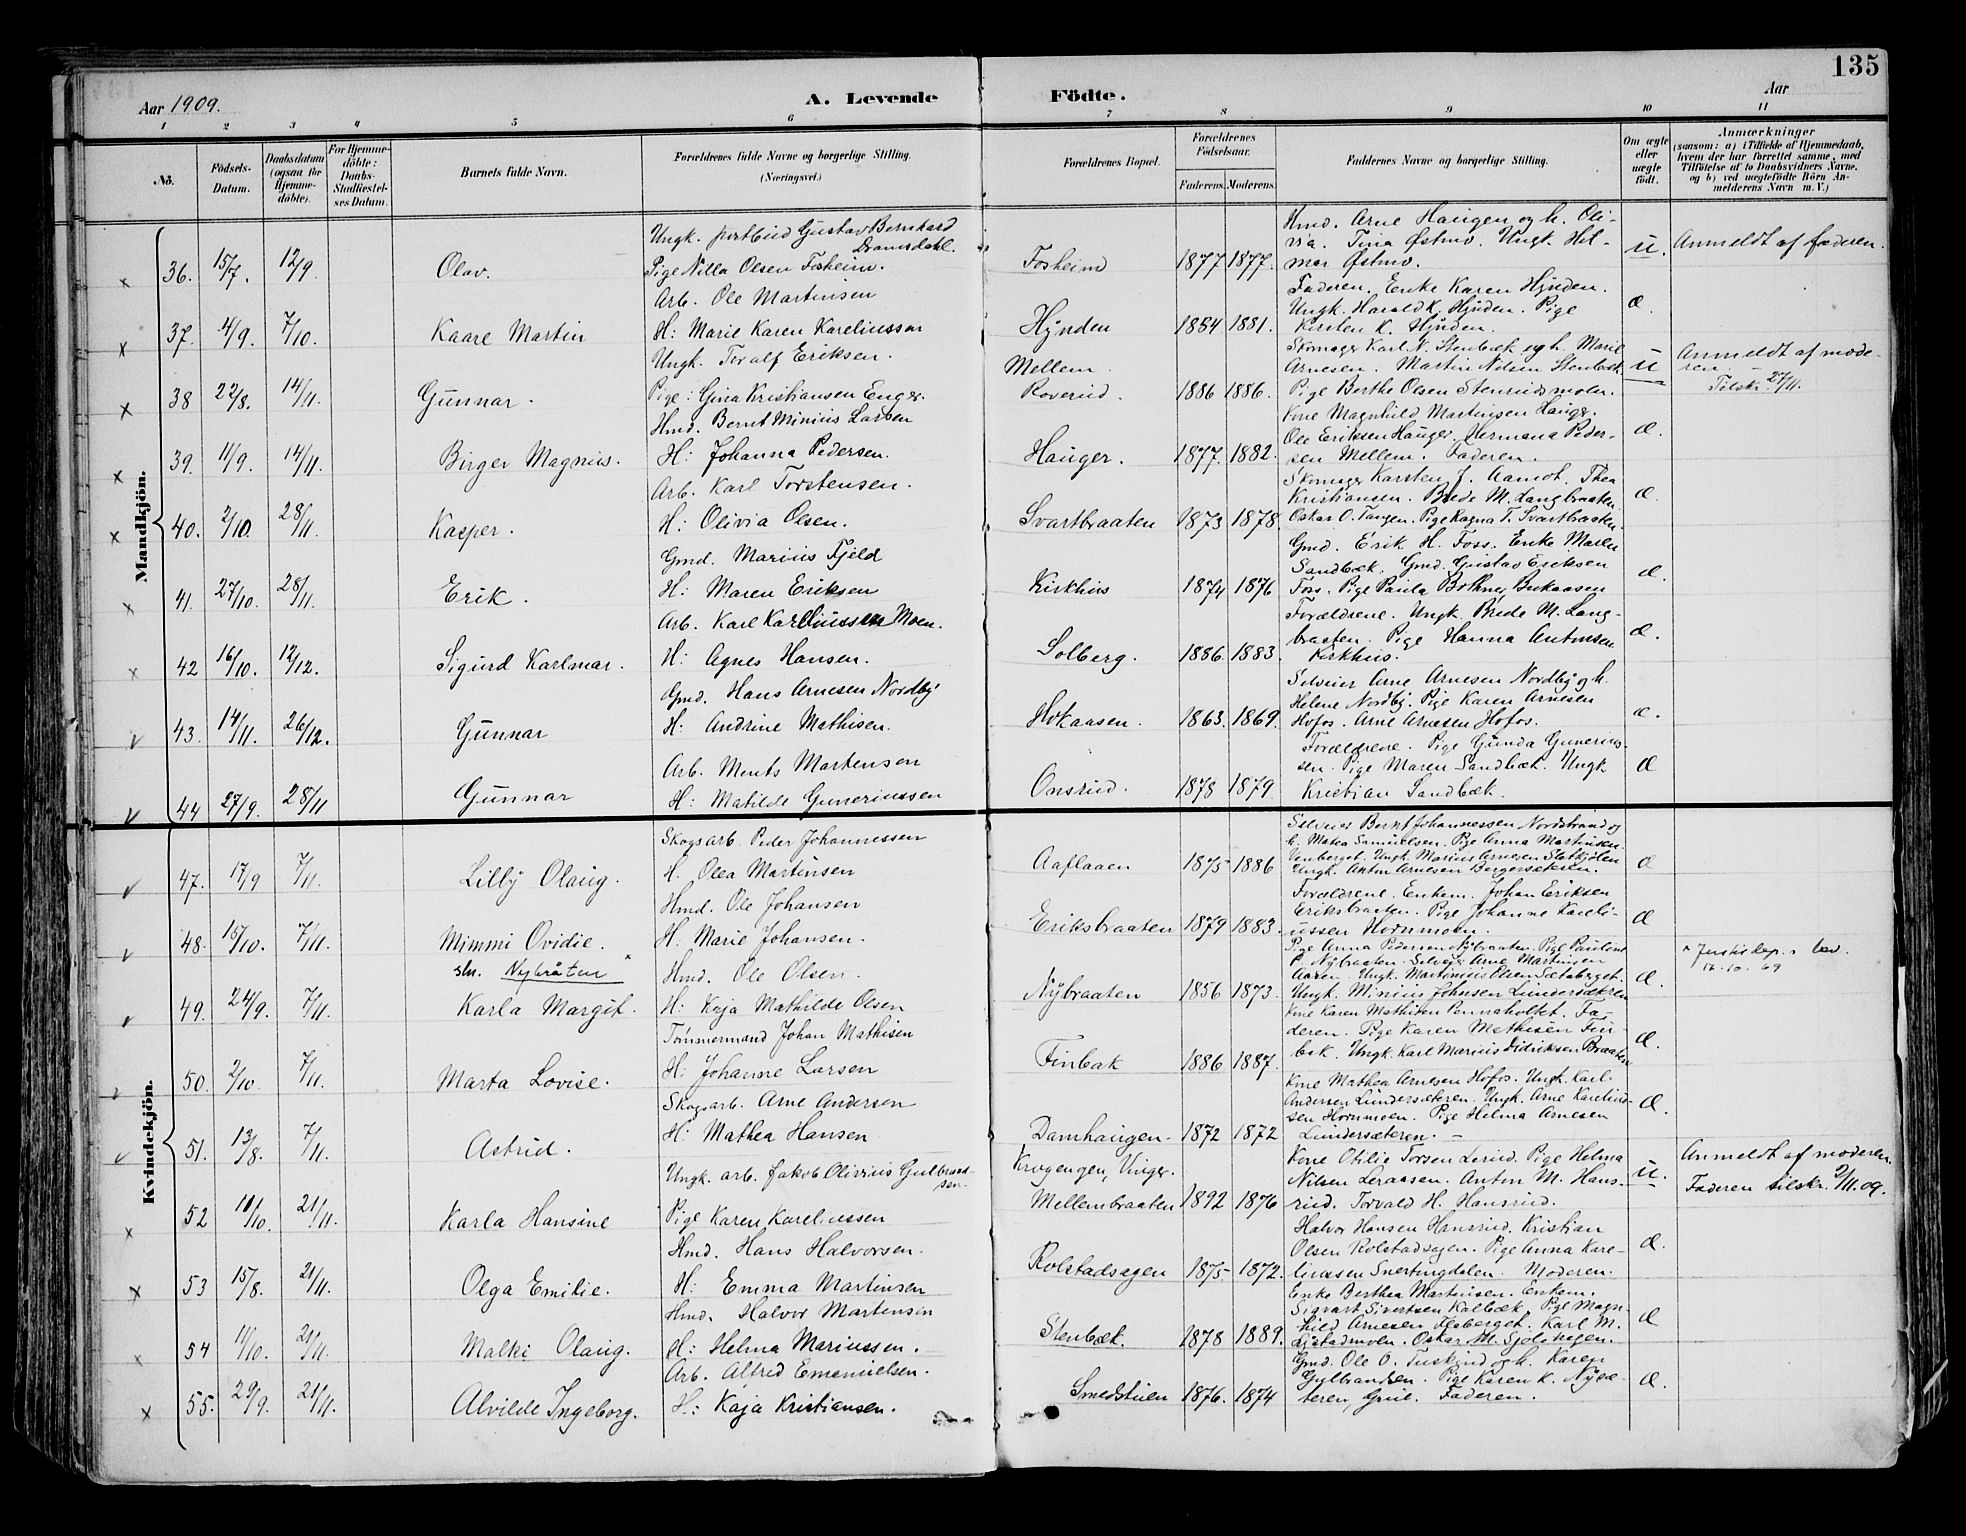 135
Aar 1909.
A. Levende Födte.
Aar
1 2 3 4 5 6 7 8 9 10 11
No.
Födsels-Datum.
Daabsdatum (ogsaa for Hjemme-döbte).
For Hjemme-döbte: Daabs-Stadfæstel-ses Datum.
Barnets fulde Navn.
Forældrenes fulde Navne og borgerlige Stilling. (Næringsvei.)
Forældrenes Bopæl.
Forældrenes Födselsaar.
Faderens. Moderens.
Faddernes Navne og borgerlige Stilling.
Om ægte eller uægte födt.
Anmærkninger
(saasom: a) i Tilfælde af Hjemmedaab, hvem der har forrettet samme, med Tilföielse af to Daabsvidners Navne. og b) ved uægtefödte Börn An-melderens Navn m. V.)
Mandkjön.
36. 15/7. 12/9. Olav.
Ungk. Gustav Bernhard Dramsdahl.
Pige Nilla Olsen Fosheim.
Fosheim 1877 1877.
Hmd. Arne Haugen og h. Oli-
va. Tina Østmo. Ungk. Hil-
mar Østmo.
u. Anmeldt af faderen.
37. 4/9. 7/10. Kaare Martin
Arb. Ole Martinsen
H: Marie Karen Kareliussen
Hynden 1854 1881.
Faderen. Enke Karen Hynden.
Ungk. Harald K. Hynden. Pige
Kirsten K. Hynden.
æ.
38 22/8. 14/11. Gunnar.
Ungk. Toralf Eriksen.
Pige: Gina Kristiansen Enger.
Mellem.
Roverud. 1886 1886.
Skomager Karl N. Stenbæk og h. Marie
Arnesen. Martin Nilsen Stenbæk
Pige Berthe Olsen Stenrudsmoen.
u Anmeldt af mode-
ren
Tilskr. 27/11.
39. 11/9. 14/11. Birger Magnus.
Hmd. Bernt Minius Larsen
H: Johanna Pedersen.
Hauger. 1877. 1882.
Kone Magnhild Martinsen Hauger.
Ole Eriksen Hauger. Hermana Peder-
sen Mellem. Faderen.
æ.
40. 2/10. 28/11. Kasper.
Arb. Karl Torstensen.
H: Olivia Olsen.
Svartbraaten 1873 1878.
Skomager Karsten J. Aamot. Thea
Kristiansen. Brede M. Langbraaten
Oskar O. Tangen. Pige Ragna T. Svartbraaten.
æ.
41. 27/10. 28/11. Erik.
Gmd. Marius Fjeld
H: Maren Eriksen
Kirkhus 1874 1876
Gmd. Erik H. Foss. Enke Maren
Sandbæk. Gmd. Gustav Eriksen
Foss. Pige Paula Bothner
æ.
42 16/10. 12/12. Sigurd Karlmar.
Arb. Karl Kareliussen Moen.
H: Agnes Hansen.
Solberg. 1886. 1883.
Forældrene. Ungk Brede M. Lang-
braaten. Pige Hanna Antonsen
Kirkhus.
æ.
43. 14/11. 26/12. Gunnar
Gmd. Hans Arnesen Nordby
H: Andrine Mathisen.
Hokaasen. 1863. 1869.
Selveier Arne Arnesen Nordby og h.
Helene Nordby. Pige Karen Arnesen
Hofos. Arne Arnesen Hofos.
æ.
44 27/9. 28/11 Gunnar
Arb. Ments Martensen
H: Matilde Guneriussen
Onsrud. 1878 1879.
Forældrene. Pige Gunda Gunerius-
sen. Pige Maren Sandbæk. Ungk
Kristian Sandbæk.
æ
Kvindekjön.
47. 17/9 7/11. Lilly Olaug.
Skogsarb. Peder Johannessen
H. Olea Martinsen
Aaflaaen 1875 1886
Selveier Bernt Johannessen Nordstrand og
h. Matea Samuelsen. Pige Anna Martinsen
Venberget. Ungk. Marius Arnesen Slotkjølen
Ungk. Anton Arnesen Bergersæteren.
æ
48. 15/10. 7/11. Mimmi Ovidie.
Hmd. Ole Johansen
H. Marie Johansen.
Eriksbraaten 1879 1883
Forældrene. Enkem. Johan Eriksen
Eriksbraaten. Pige Johanne Kareli-
ussen Hornmoen.
æ
sln. Nybråten x
49. 24/9. 7/11. Karla Margit.
Hmd. Ole Olsen.
H: Kaja Mathilde Olsen
Nybraaten 1856 1873.
Pige Anna Pedersen Nybraaten. Pige Pauline
P. Nybraaten. Selveier Arne Martinsen
Aaren. Ungk. Martinius Olsen Sætaberget.
Ungk. Minius Johnsen Lundersæteren
æ.
x lev.
17.10.69
50. 2/10. 7/11. Marta Lovise.
Tömmermand Johan Mathisen
H: Johanne Larsen
Finbak 1886 1887.
Kone Karen Mathisen Pennaholtet. Fa-
deren. Pige Karen Mathisen Fin-
bak. Ungk. Karl Marius Didriksen Braaten
æ.
51. 13/8. 7/11. Astrid.
Skogsarb. Arne Andersen
H: Mathea Hansen
Damhaugen. 1872 1872
Kone Mathea Arnesen Hofos. Ungk. Karl
Andersen Lundersæteren. Ungk. Arne Karelius-
sen Hornmoen. Pige Helma Arnesen
Lundersæteren.
æ.
52 10/10. 21/11. Karla Hansine
Ungk. arb. Jakob Olivius Gulbrand-
sen.
Pige Karen Kareliussen
Krogengen, Vinger.
Mellembraaten 1892 1876
Kone Otilie Torsen Lerud. Pige Helma
Nilsen Leraasen. Anton M. Hans-
rud. Torvald H. Hansrud.
u. Anmeldt af moderen.
Faderen tilskr. 2/11.09.
53 15/8. 21/11. Olga Emilie.
Hmd. Hans Halvorsen.
H: Emma Martinsen
Rolstadsagen 1875 1872.
Halvor Hansen Hansrud. Kristian
Olsen Rolstadsagen. Pige Anna Kare-
liussen Snertingdalen. Moderen.
æ.
54 11/10. 21/11. Malki Olaug.
Hmd. Halvor Martensen
H: Helma Mariussen.
Stenbæk. 1878 1889.
Enke Berthea Martinsen. Enkem.
Sigvart Sivertsen Kalbæk. Pige Magn-
hild Arnesen. Karl M.
Oskar M.
æ
55. 29/9. 21/11. Alvilde Ingeborg.
Arb. Alfred Emanuelsen.
H: Kaja Kristiansen.
Smedstuen 1876. 1874
Gmd. Ole O. Tuskind og h. Karen
Gulbrandsen. Pige Karen K. Nysæ-
teren, Grue. Faderen.
æ.